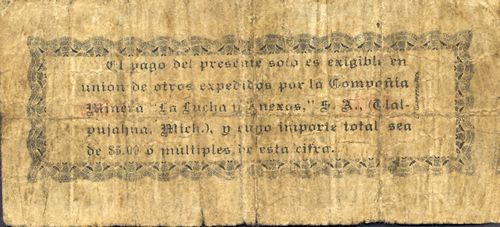 El pago del presente solo es exigible en
union de otros expedidos por la Compañia
Minera "La Lucha y Anexas," S. A., (Tlal-
pujahua, Mich.), y cuyo importe total sea
de $5.00 ó multiples de esta cifra.